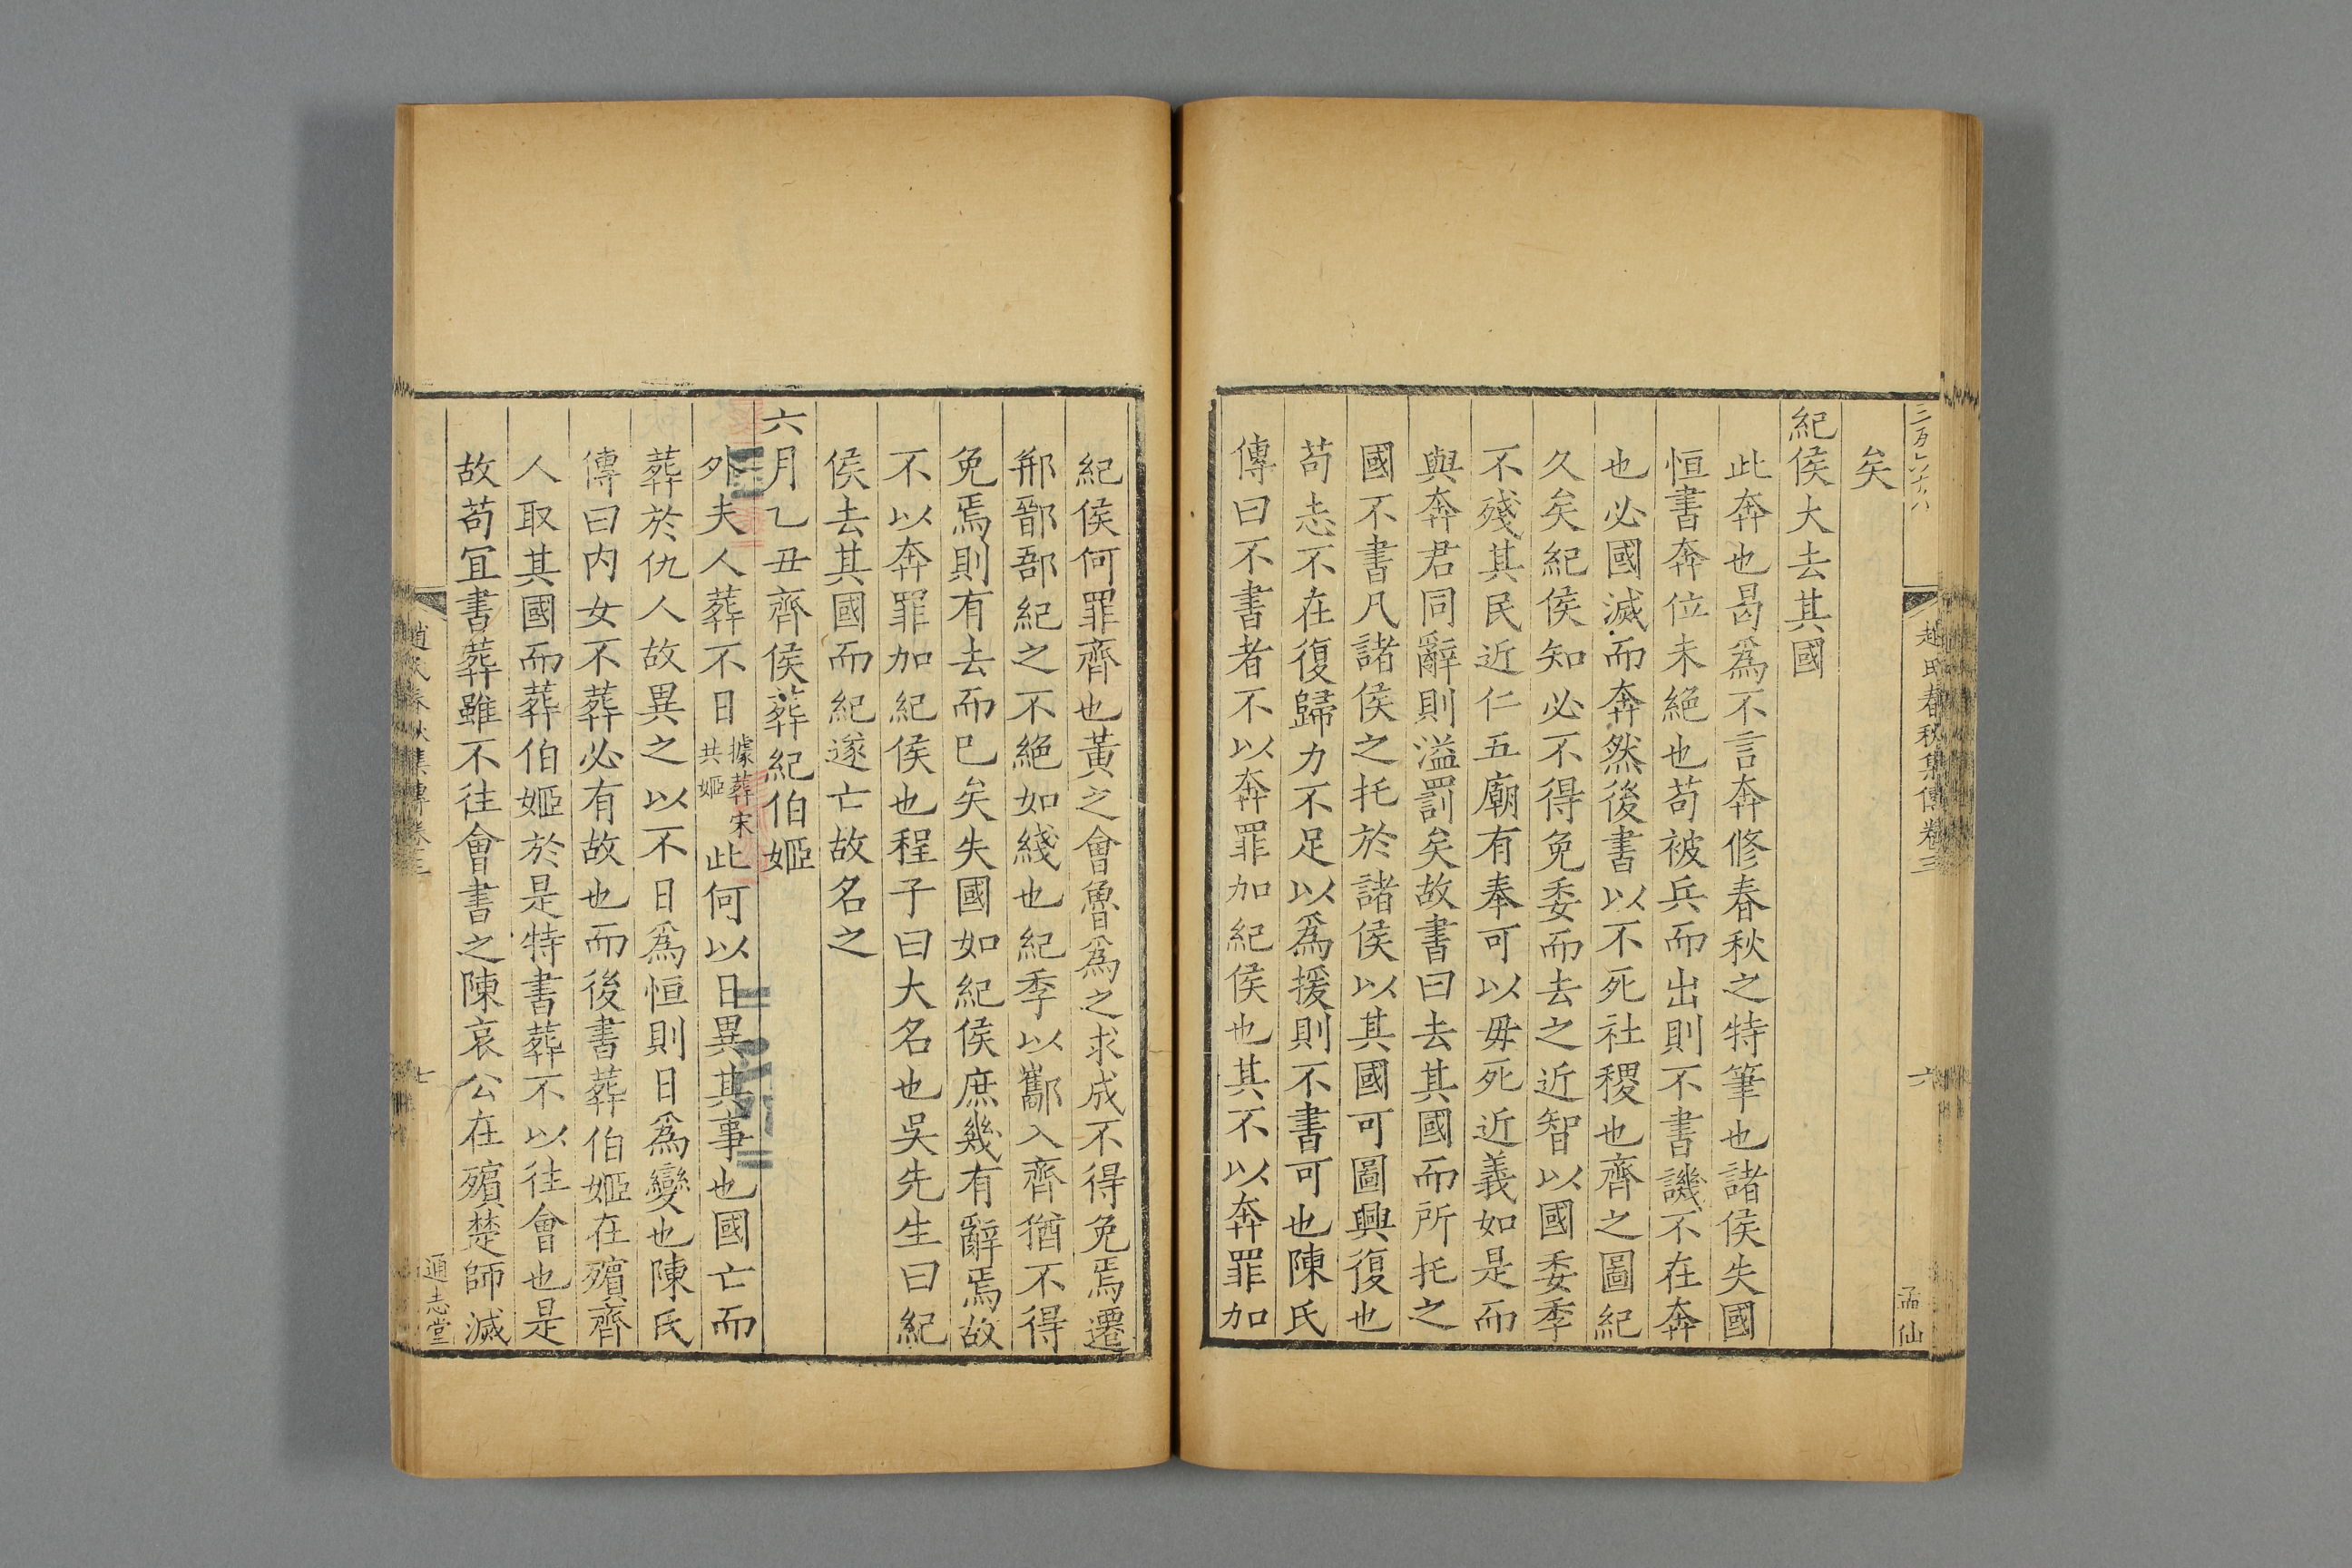 趙氏春秋集傳卷三
六
孟仙
矣
紀侯大去其國
此奔也曷爲不言奔修春秋之特筆也諸侯失國
恒書奔位未絕也苟被兵而出則不書譏不在奔
也必國滅而奔然後書以不死社稷也齊之圖紀
久矣紀侯知必不得免委而去之近智以國委季
不殘其民近仁五廟有奉可以毋死近義如是而
與奔君同辭則溢罰矣故書曰去其國而所托之
國不書凡諸侯之托於諸侯以其國可圖興復也
苟志不在復歸力不足以爲援則不書可也陳氏
傳曰不書者不以奔罪加紀侯也其不以奔罪加
紀侯何罪齊也黃之會魯爲之求成不得免焉遷
郱鄑郚紀之不絕如綫也紀季以酅入齊猶不得
免焉則有去而已矣失國如紀侯庶幾有辭焉故
不以奔罪加紀侯也程子曰大名也吳先生曰紀
侯去其國而紀遂亡故名之
六月乙丑齊侯葬紀伯姬
外夫人葬不日據葬宋共姬此何以日異其事也國亡而
葬於仇人故異之以不日爲恒則日爲變也陳氏
傳曰内女不葬必有故也而後書葬伯姬在殯齊
人取其國而葬伯姬於是特書葬不以往會也是
故苟宜書葬雖不往會書之陳哀公在殯楚師滅
趙氏春秋集傳卷三
七
通志堂